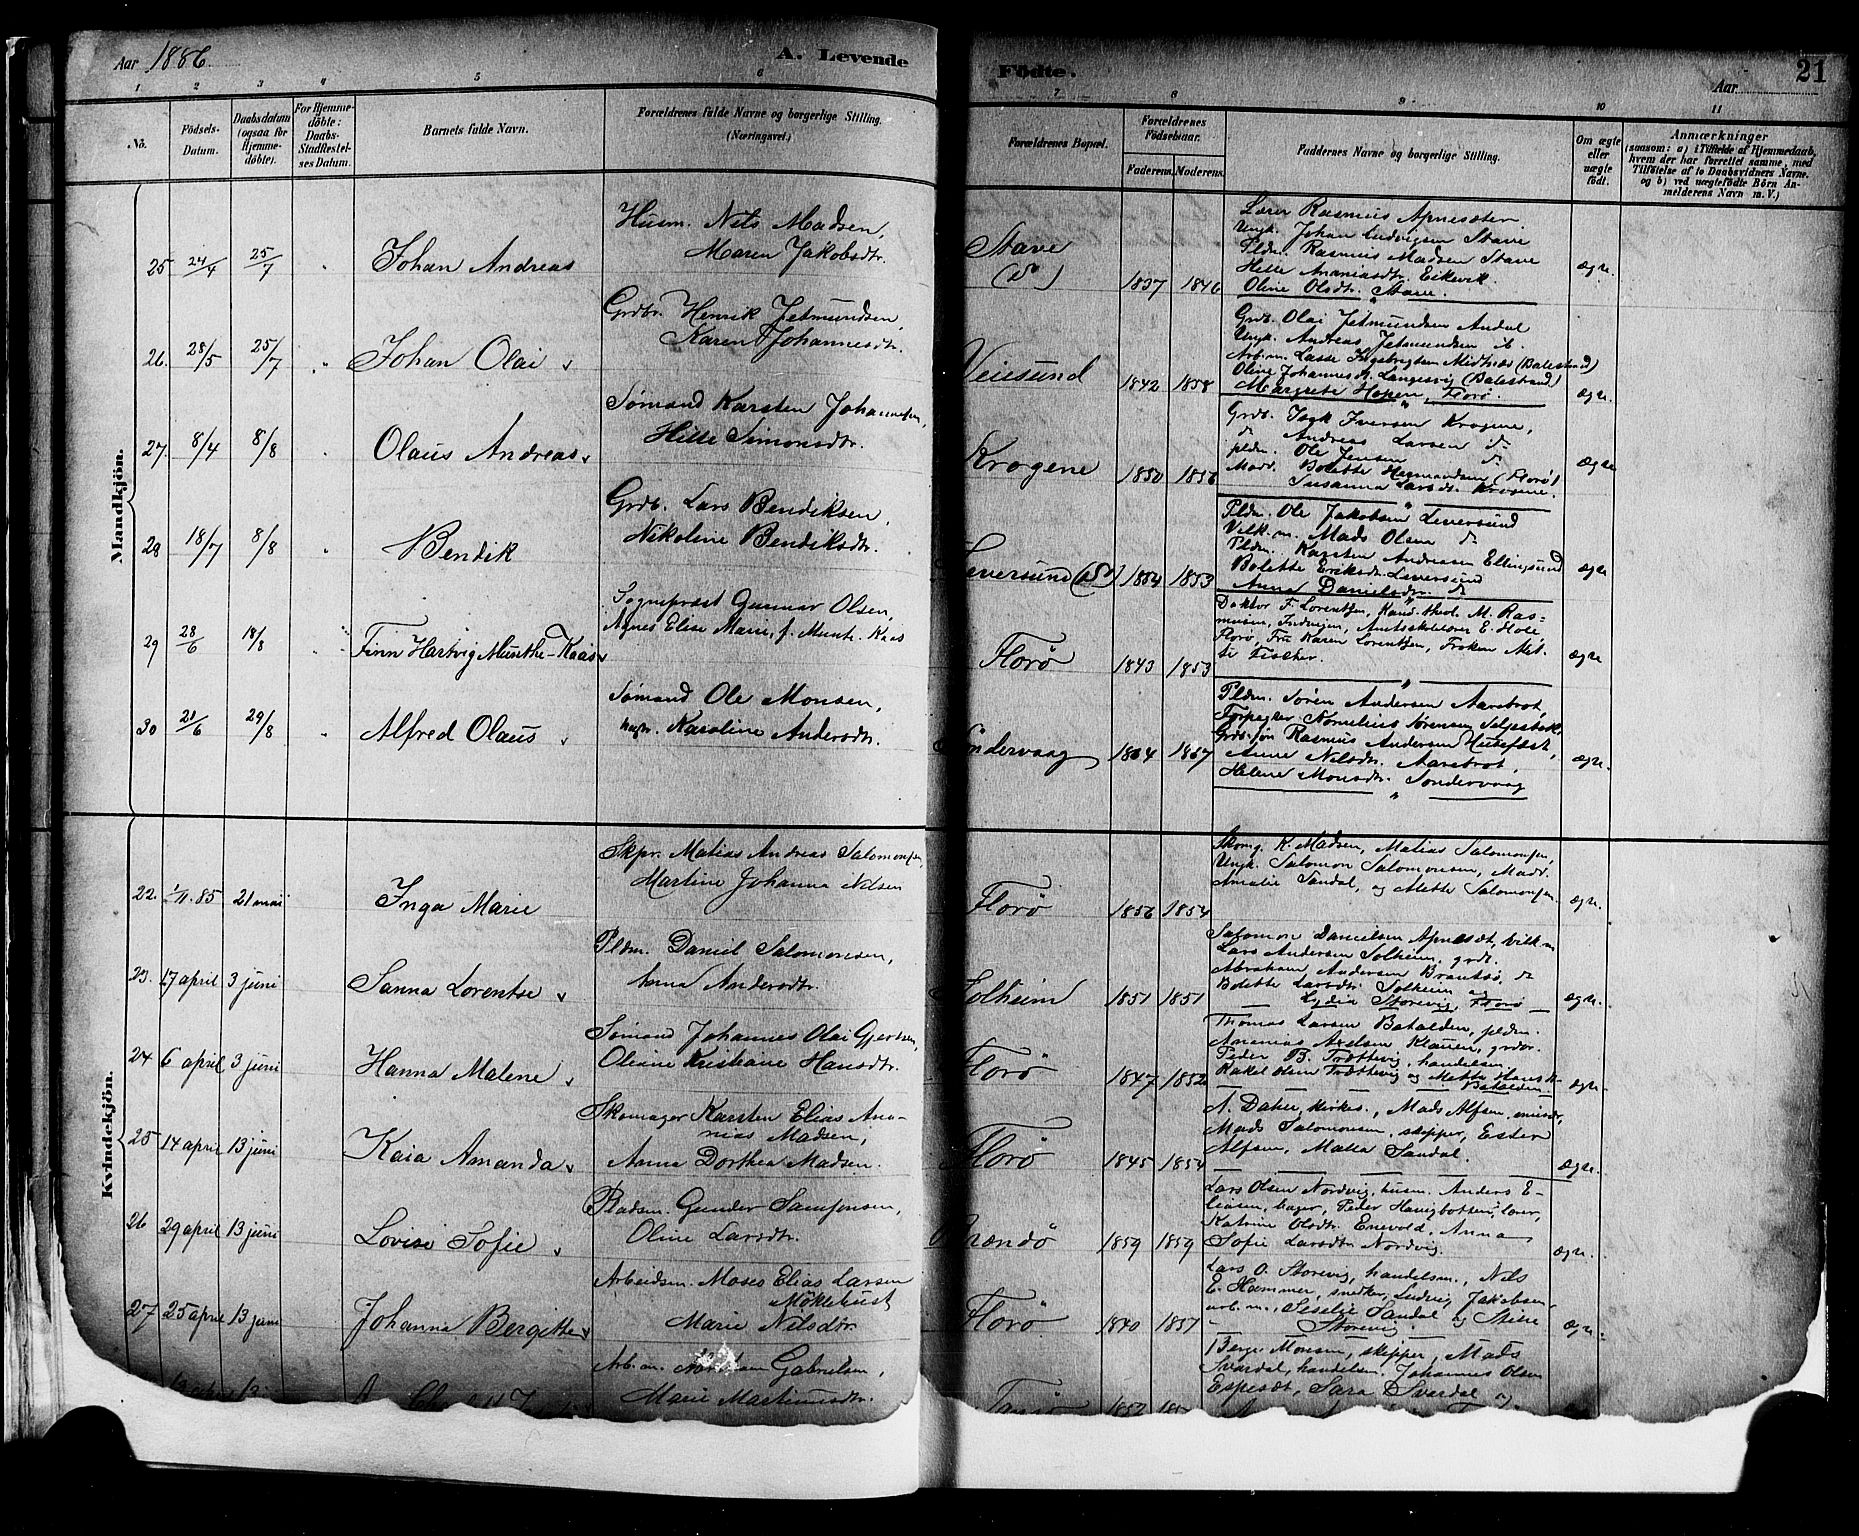 Aar 1886
A. Levende
Födte.
Aar
21
1 2 3 4 5 6 7 8 9 10 11
No.
Födsels-
Datum.
Daabsdatum
(ogsaa for
Hjemme-
döbte).
For Hjemme-
döbte:
Daabs-
Stadfestel-
ses Datum.
Barnets fulde Navn.
Forældrenes fulde Navne og borgerlige Stilling.
(Næringsvei.)
Forældrenes Bopæl.
Forældrenes
Födselsaar.
Faderens.
Moderens.
Faddernes Navne og borgerlige Stilling.
Om ægte
eller
uægte
födt.
Anmærkninger
(saasom: a) i Tilfælde af Hjemmedaab,
hvem der har forrettet samme, med
Tilföielse af to Daabsvidners Navne.
og b) ved uægtefödte Börn An-
melderens Navn m. V.)
Mandkjön.
25 24/4 25/7 " Johan Andreas
Husm. Nils Madsen,
Maren Jakobsdtr.
Stave
1837 1846
Lærer Rasmus Apnesæter
Ungk. Johan Ludvigsen Stave
Pldm. Rasmus Madsen Stave
Hille Ananiasdtr. Eikevik.
Oline Olsdtr. Stave.
ægte.
26. 28/5 25/7 " Johan Olai
Grdbr. Henrik Jetmundsen,
Karen Johannesdtr.
Veiesund
1842 1858
Grdb. Olai Jetmundsen Andal
Ungk. Andreas Jetmundsen ib.
Arb.m. Lasse Ingebrigtsen Midtnæs (Balestrand)
Oline Johannesdt. Langesvig (Balestrand)
Margrete Hopen, Florø.
ægte.
27. 8/4 8/8 Olaus Andreas
Sømand Karsten Johannessen,
Hille Simonsdtr.
Krogene
1850 1856
Grdb. Isak Iversen Krogene,
do Andreas Larsen do
pldm. Ole Jensen do
Madr. Bolette Hermandsen (Florø)
Susanna Larsdt. Krogene.
ægte
28 18/7 8/8 " Bendik
Grdb. Lars Bendiksen,
Nikoline Bendiksdtr.
Leversund
1854 1853
Pldm. Ole Jakobsen Leversund
Vilk.m. Mads Olsen do
Pldm. Karsten Andreasen Ellingsund
Bolette Eriksdtr. Leversund
Anna Danielsdtr. do
ægte
29 28/6 18/8 " Finn Hartvig Munthe-Kaas
Sognepræst Gunnar Olsen,
Agnes Elise Marie, f. Munt. Kaas
Florø
1843 1853
Doktor F. Lorentzen, Kand. theol. M. Ras-
mussen, Indvigen, Amtsskolelærer E. Hole,
Florø, Fru Karen Lorentzen, Frøken Met-
te Fischer.
ægte
30 21/6 29/8 " Alfred Olaus
Sømand Ole Monsen,
Karoline Andersdtr.
Søndervaag
1864 1867
Pldm. Søren Andersen Aarebrot,
Forpagter Kornelius Sørensen
Grdb.søn Rasmus Andersen Husefest,
Anne Nilsdtr. Aarebrot,
Helene Monsdtr. Søndervaag
ægte.
Kvindekjön.
22. 1/11.85 21 mai Inga Marie
Skpr. Matias Andreas Salomonsen,
Martine Johanna Nilsen
Florø
1856 1854
Skomg. K. Madsen, Matias Salomonsen,
Ungk. Salomon Salomonsen, Madr.
Amalie Sandal, og Mette Salomonsen.
ægte.
23. 17 april 3 juni Sanna Lorentse
Pldm. Daniel Salomonsen,
Anna Andersdtr.
Solheim
1851 1851
Salomon Danielsen Apnesæt, vilk.m
Lars Andersen Solheim, grdb.
Abraham Andersen Brantsø, do
Bolette Larsdtr. Solheim og
Lydia Storevig, Florø
ægte.
24 6 april 3 juni Hanna Malene
Sømand Johannes Olai Gjertsen,
Oliane Kristiane Hansdtr.
Florø
1847 1852
Thomas Larsen Batalden, pldm.
Ananias Axelsen Klauen, grdbr.
Peder B. Trættevig, handelsm.
Rakel Olsen Trættevig og Mette Hansdt.
Batalden
ægte.
25 14 april 13 juni Kaia Amanda
Skomager Karsten Elias Ana-
nias Madsen,
Anna Dorthea Madsen.
Florø
1845 1854
A. Daher, kirkes., Mads Alfsen, murer,
Mads Salomonsen, skipper, Ester
Alfsen, Malla Sandal.
ægte.
26 29 april 13 juni Lovise Sofie
Pladsm. Gunder Samsonsen,
Oline Larsdtr.
Brandø
1859 1859
Lars Olsen Nordvig, husm. Anders E-
liasen, bager, Peder Havigbotten, lærer,
Katrine Olsdtr. Enevold, Anna
Sofie Larsdtr. Nordvig.
ægte.
27 25 april 13 juni Johanna Bergitte
Arbeidsm. Moses Elias Larsen
Møklebust
Marie Nilsdtr.
Florø
1840 1857
Lars O. Storevig, handelsm., Nils
E. Hammer, snedker, Ludvig Jakobsen
arb.m., Sesselje Sandal og Stine
Storevig.
ægte.
13 april 13
Arb.m. Gabrielsen,
Marie Martinusdtr.
1852
Berge Monsen, skipper, Mads
Svardal, handelsm. Johannes Olsen
Espesæt, Sara Svardal og